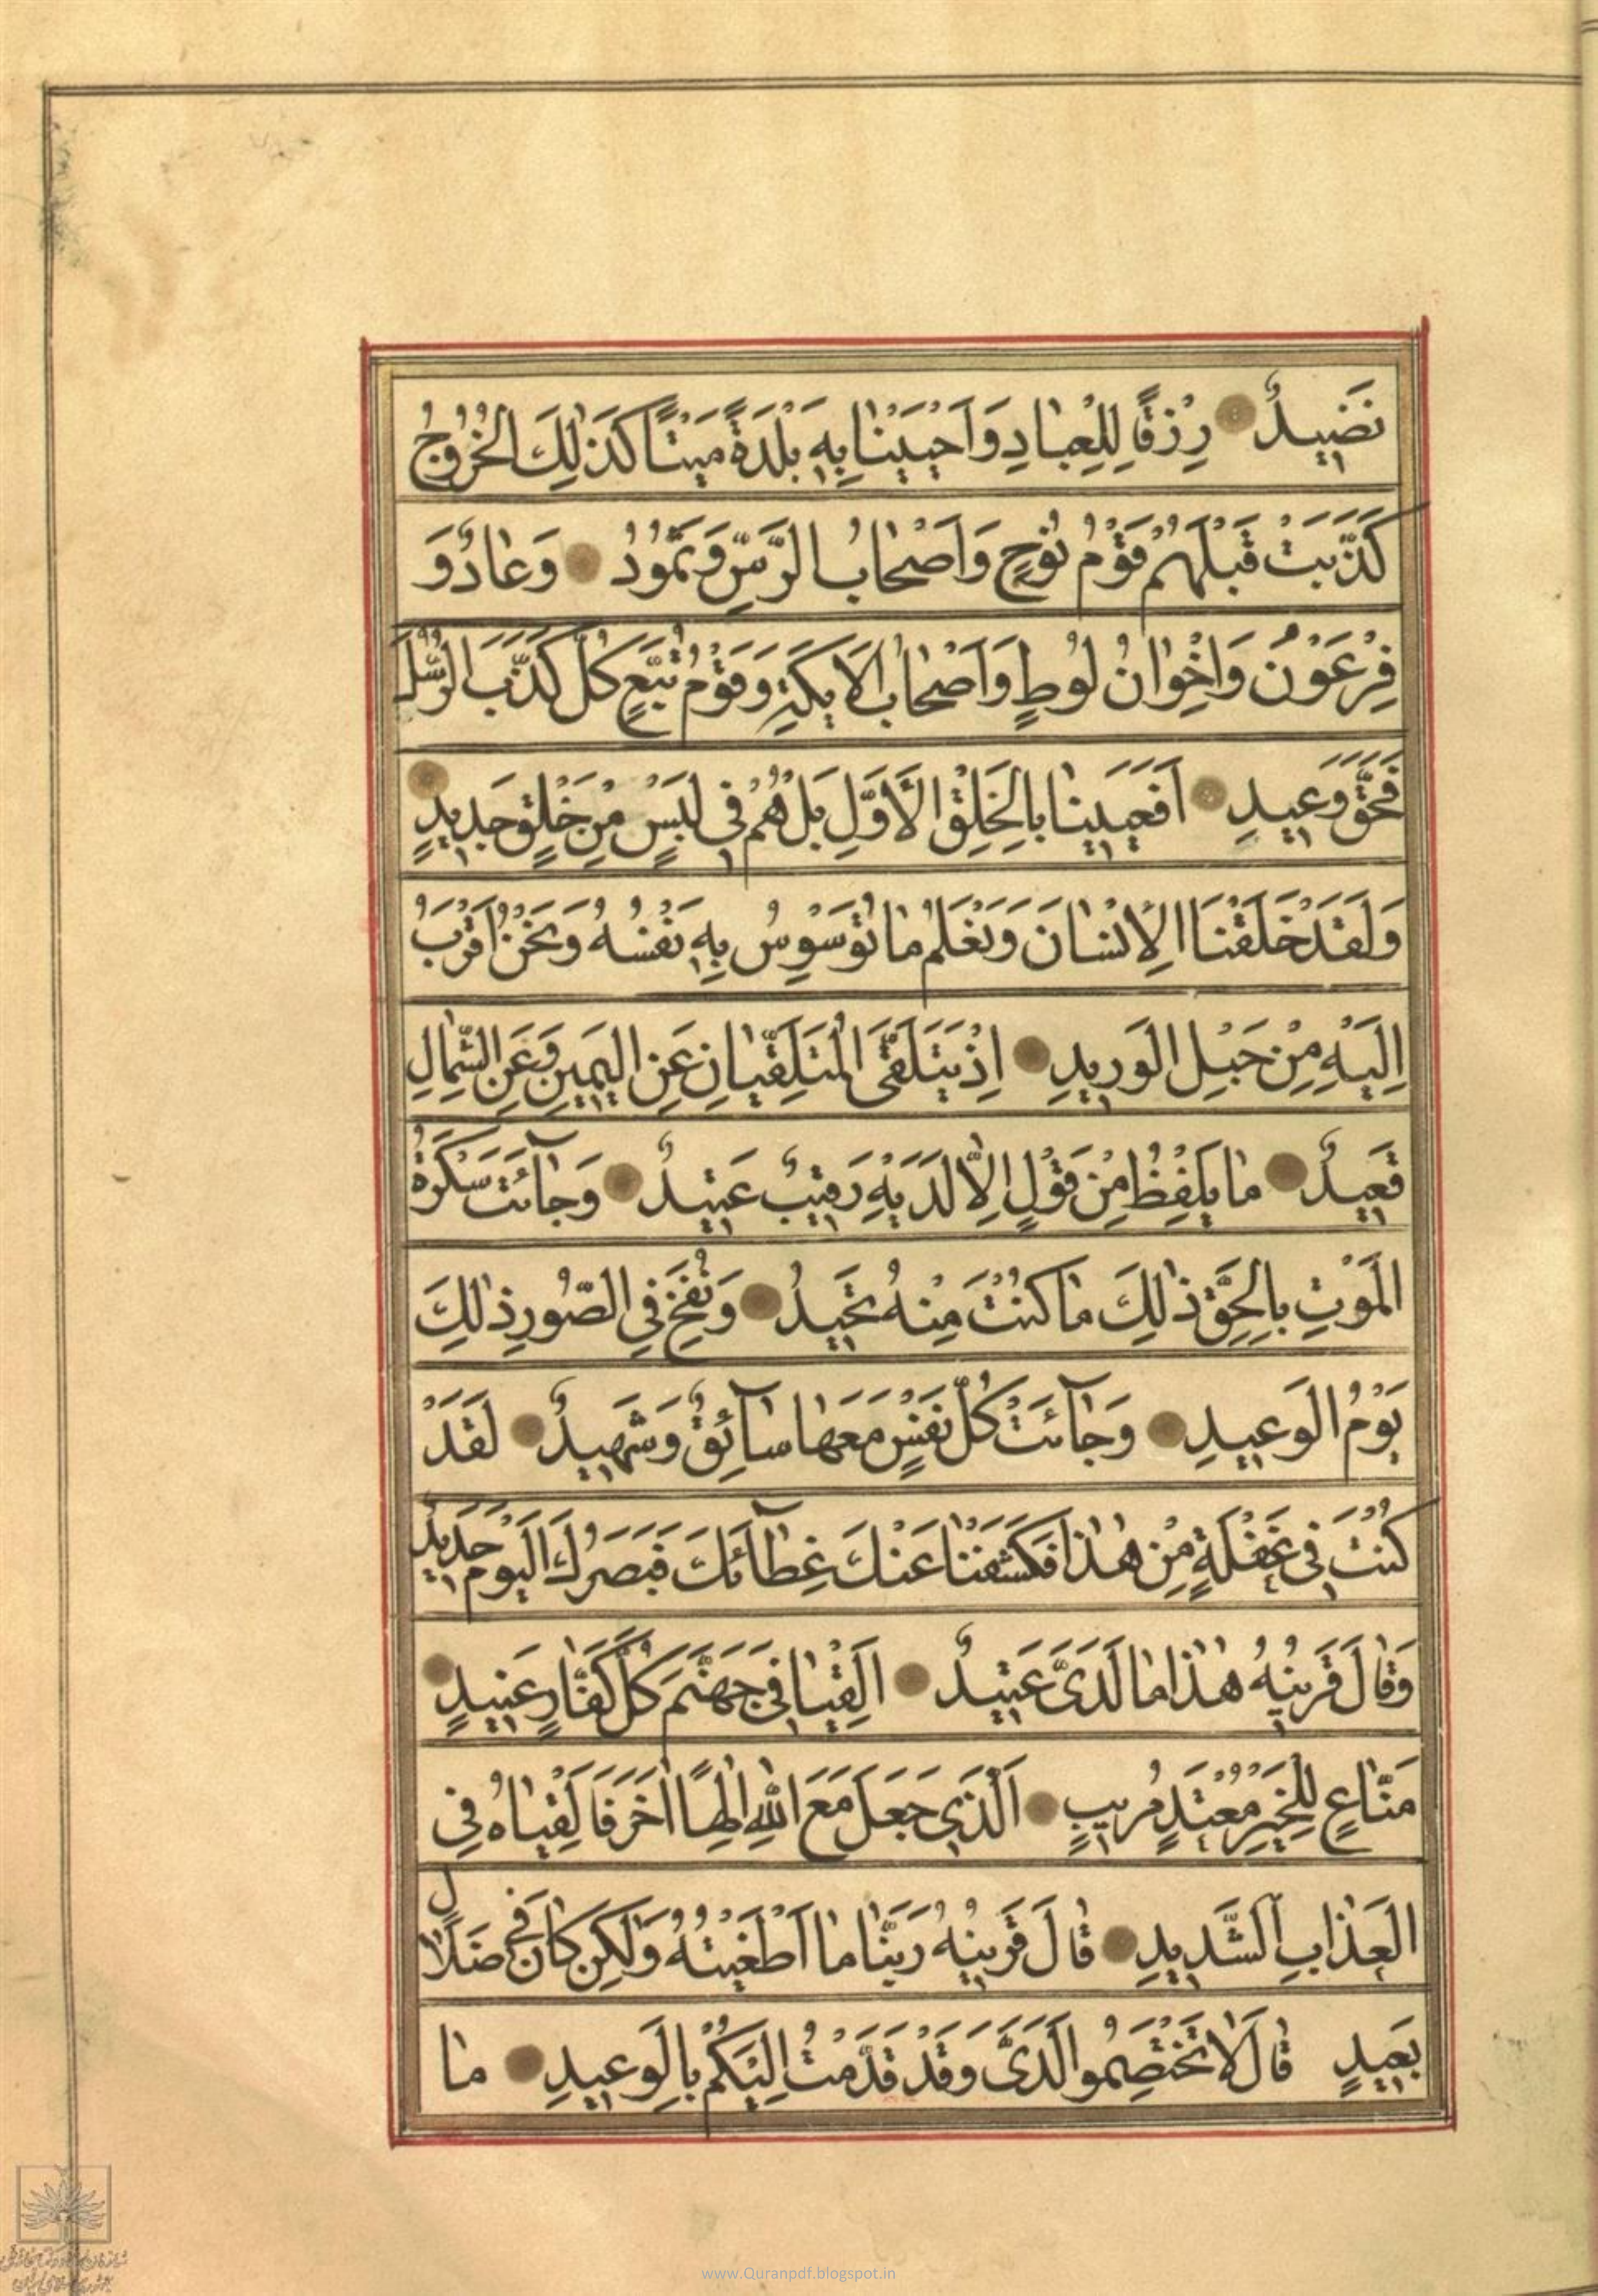 نَضِيدٌ رِزْقًا لِلْعِبَادِ وَاَحْيَيْنَا بِهِ بَلْدَةً مَيْتًا كَذٰلِكَ الْخُرُوجُ
كَذَّبَتْ قَبْلَهُمْ قَوْمُ نُوحٍ وَاَصْحَابُ الرَّسِّ وَثَمُودُ وَعَادٌ وَ
فِرْعَوْنُ وَاِخْوَانُ لُوطٍ وَاَصْحَابُ الْاَيْكَةِ وَقَوْمُ تُبَّعٍ كُلٌّ كَذَّبَ الرُّسُلَ
فَحَقَّ وَعِيدِ اَفَعَيِينَا بِالْخَلْقِ الْاَوَّلِ بَلْ هُمْ فِي لَبْسٍ مِنْ خَلْقٍ جَدِيدٍ
وَلَقَدْ خَلَقْنَا الْاِنْسَانَ وَنَعْلَمُ مَا تُوَسْوِسُ بِهِ نَفْسُهُ وَنَحْنُ اَقْرَبُ
اِلَيْهِ مِنْ حَبْلِ الْوَرِيدِ اِذْ يَتَلَقَّى الْمُتَلَقِّيَانِ عَنِ الْيَمِينِ وَعَنِ الشِّمَالِ
قَعِيدٌ مَا يَلْفِظُ مِنْ قَوْلٍ اِلَّا لَدَيْهِ رَقِيبٌ عَتِيدٌ وَجَآئَتْ سَكْرَةُ
الْمَوْتِ بِالْحَقِّ ذٰلِكَ مَا كُنْتَ مِنْهُ تَحِيدُ وَنُفِخَ فِي الصُّورِ ذٰلِكَ
يَوْمُ الْوَعِيدِ وَجَآئَتْ كُلُّ نَفْسٍ مَعَهَا سَآئِقٌ وَشَهِيدٌ لَقَدْ
كُنْتَ فِي غَفْلَةٍ مِنْ هٰذَا فَكَشَفْنَا عَنْكَ غِطَآئَكَ فَبَصَرُكَ الْيَوْمَ حَدِيدٌ
وَقَالَ قَرِينُهُ هٰذَا مَا لَدَيَّ عَتِيدٌ اَلْقِيَا فِي جَهَنَّمَ كُلَّ كَفَّارٍ عَنِيدٍ
مَنَّاعٍ لِلْخَيْرِ مُعْتَدٍ مُرِيبٍ اَلَّذِي جَعَلَ مَعَ اللّٰهِ اِلٰهًا اٰخَرَ فَاَلْقِيَاهُ فِي
الْعَذَابِ الشَّدِيدِ قَالَ قَرِينُهُ رَبَّنَا مَا اَطْغَيْتُهُ وَلٰكِنْ كَانَ فِي ضَلَالٍ
بَعِيدٍ قَالَ لَا تَخْتَصِمُوا لَدَيَّ وَقَدْ قَدَّمْتُ اِلَيْكُمْ بِالْوَعِيدِ مَا
www.Quranpdf.blogspot.in